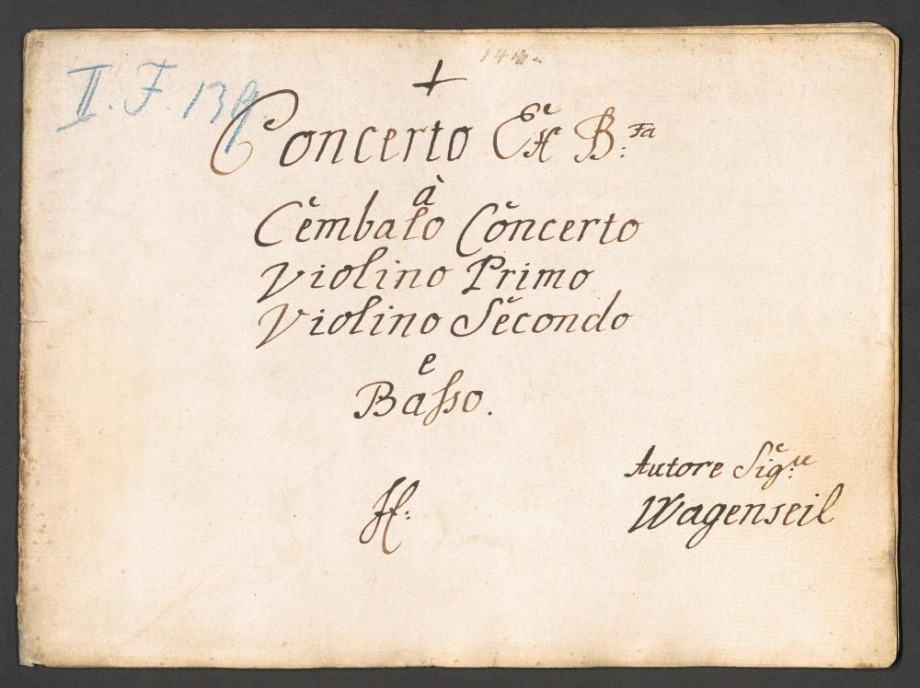 II. F. 139.
+
Concerto Ex B:fa
à
Cembalo Concerto
Violino Primo
Violino Secondo
e
Basso.
Autore Sig:re
Wagenseil